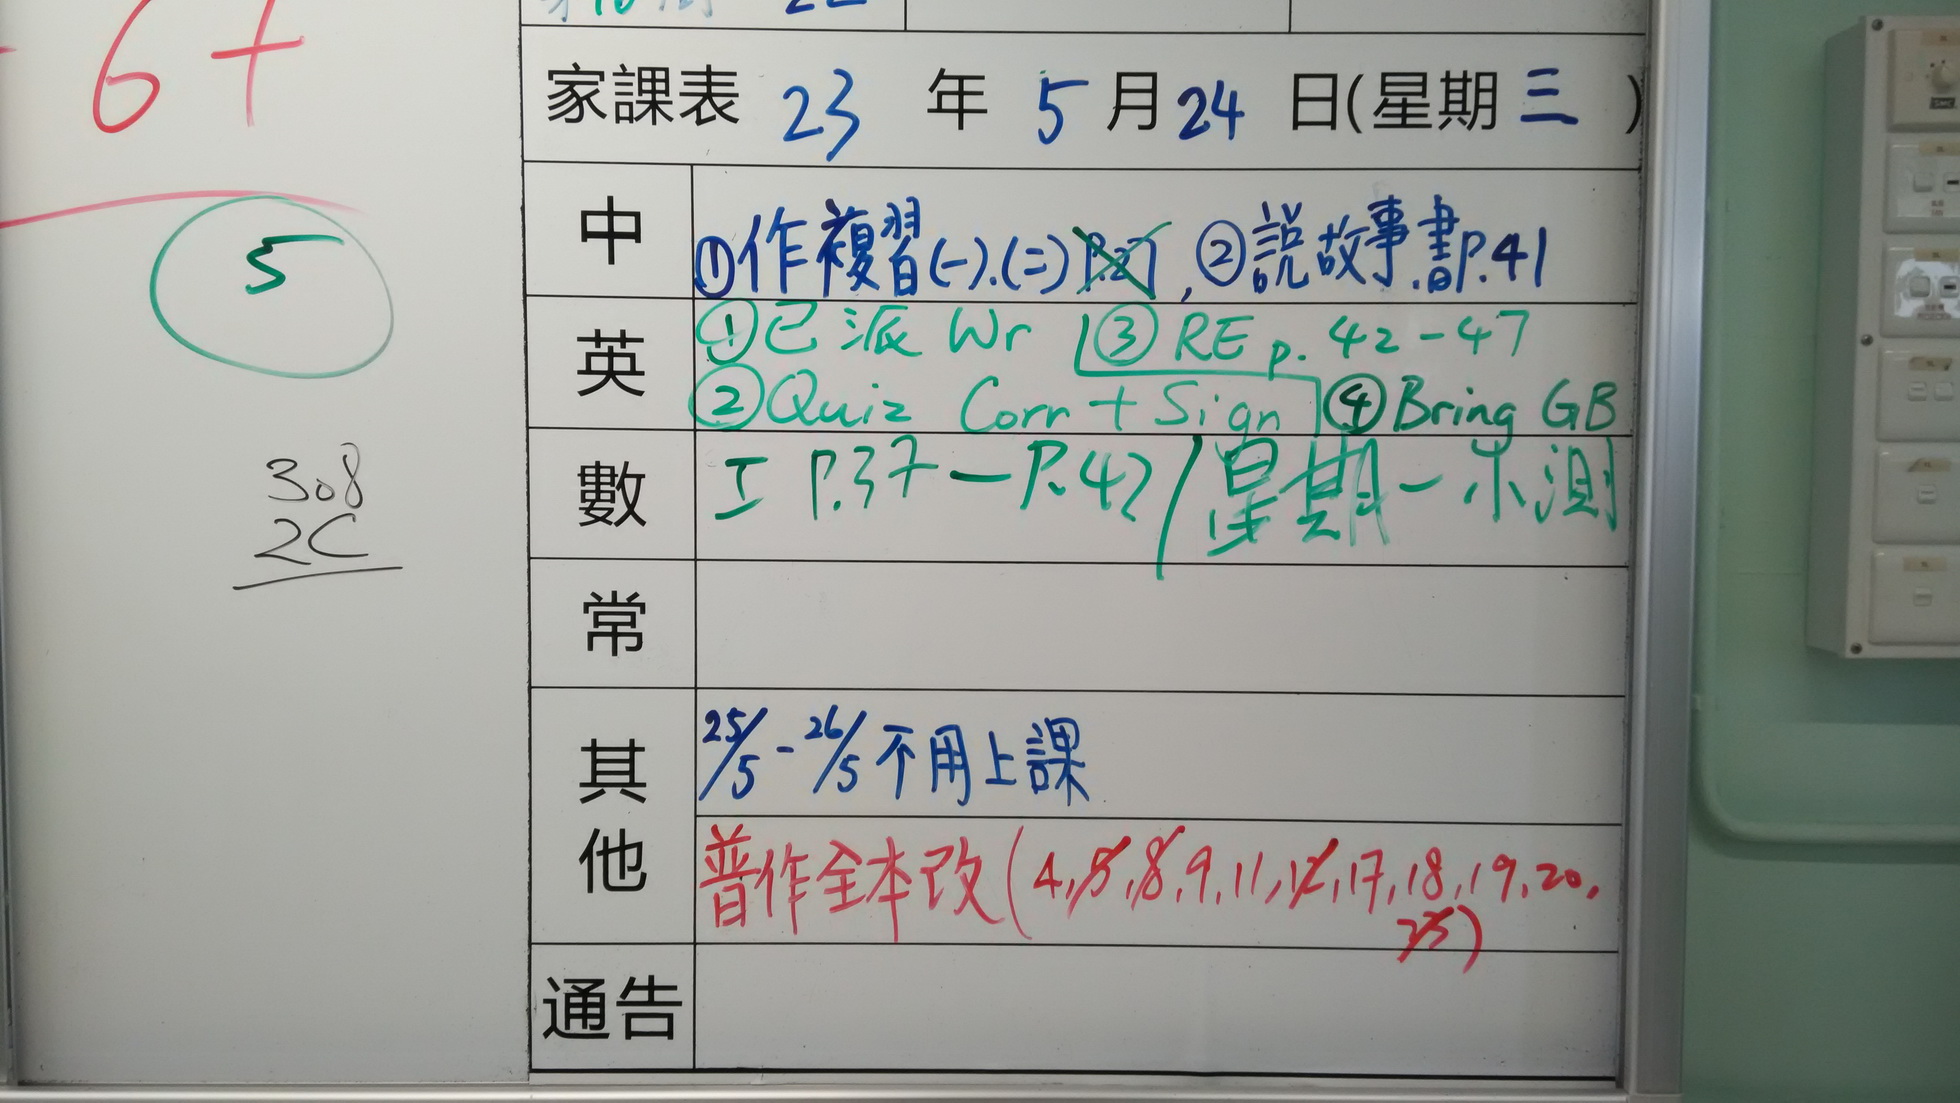 6 +
5
308
2C
家課表 23 年 5 月 24 日(星期 三 )
中
①作複習(一).(二) , ②説故事書P.41
英
①已派 Wr ③ RE p. 42-47
②Quiz Corr + Sign ④Bring GB
數
工 P.37-P.42/星期一小測
常
其他
25/5 - 26/5 不用上課
普作全本改(4,5,8,9,11,12,17,18,19,20,
25)
通告